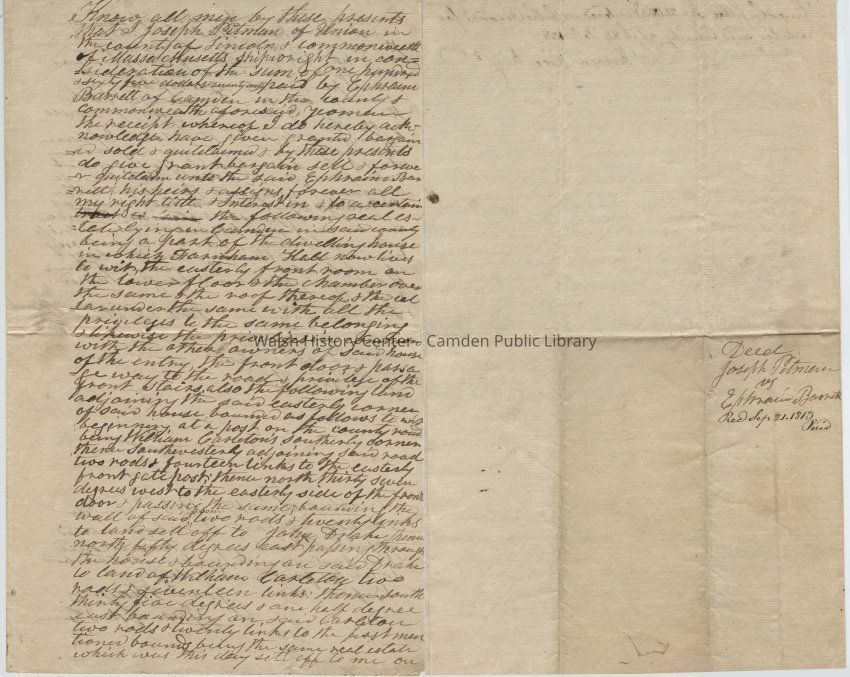 Know all men by these presents
that I Joseph Pitman of Union in
the county of Lincoln & commonwealth
of Massachusetts shipwright in con-
sideration of the sum of one hundred
& sixty five dollars paid by Ephraim
Barrett of Camden in the county &
commonwealth aforesaid, yeoman
the receipt whereof I do hereby ack-
nowledge, have given granted bargain
ed sold & quitclaimed & by these presents
do give grant bargain sell & foreve
r quitclaim unto the said Ephraim Bar
rett his heirs & assigns forever all
my right title & Interest in & to a certain
the following real es-
tate lying in Camden in said county
being a part of the dwelling house
in which Farnham Hall now lives
to wit, the easterly front room on
the lower floor & the chamber over
the same & the roof thereof & the cel
lar under the same with all the
privileges to the same belonging
likewise the privilege
with the other owners of said house
of the entry, the front door & passa
ge way to the road & privilege of the
front stairs, also the following land
adjoining the said easterly corner
of said house, bounded as follows to wit
beginning at a post on the county road
being William Carleton's southerly corner
thence southwesterly adjoining said road
two rods & fourteen links to the easterly
front gate post, thence north thirty seven
degrees west to the easterly side of the front
door & passing the same, bounding the
wall of said room two rods & twenty links
to land sett off to John Drake thence
north fifty degrees east passing through
the house & bounding on said Drake
to land of William Carleton two
rods & seventeen links, thence south
thirty five degrees & one half degree
east bounding on said Carleton
two rods & twenty links to the first men
tioned bounds being the same real estate
which was this day sett off to me on
Walsh History Center - Camden Public Library
Deed
Joseph Pitman
vs
Ephraim Barrett
Recd Sep. 21. 1813
Paid